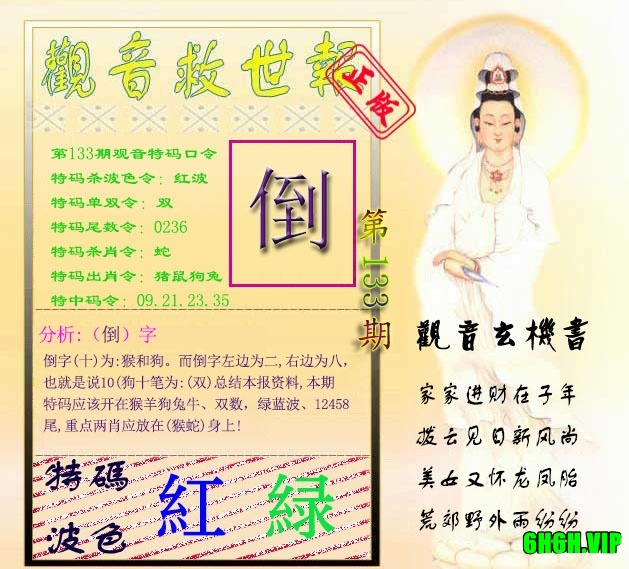 觀音救世報
正版
第133期观音特码口令
特码杀波色令: 红波
特码单双令: 双
特码尾数令: 0236
特码杀肖令: 蛇
特码出肖令: 猪鼠狗兔
特中码令: 09.21.23.35
倒
第133期
分析:（倒）字
倒字(十)为:猴和狗。而倒字左边为二,右边为八,
也就是说10(狗十笔为:(双)总结本报资料,本期
特码应该开在猴羊狗兔牛、双数, 绿蓝波、12458
尾,重点两肖应放在(猴蛇)身上!
特碼
波色
紅 緑
觀音玄機書
家家进财在子年
拨云见日新风尚
美女又怀龙凤胎
荒郊野外雨纷纷
6H6H.VIP